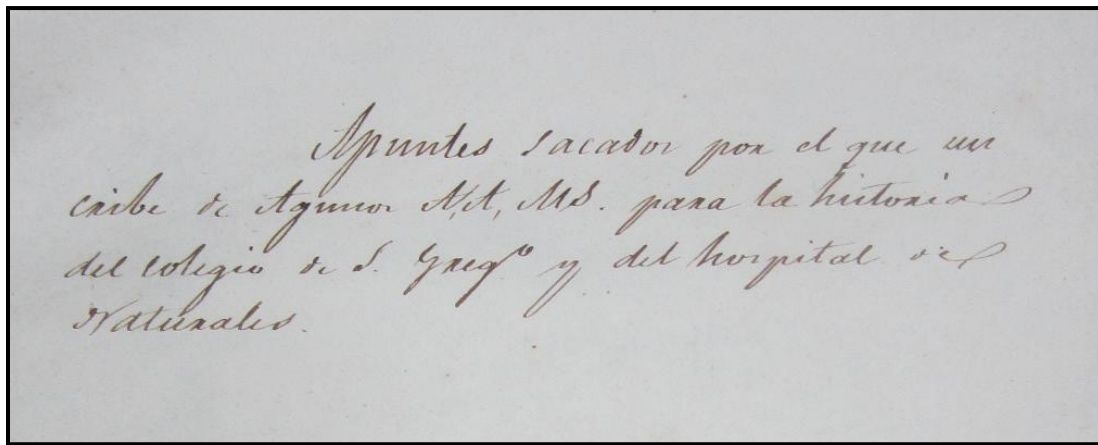 Apuntes sacados por el que sus
cribe de Agunos A,A, MS. para la historia
del colegio de S. Gregº y del hospital de
Naturales.